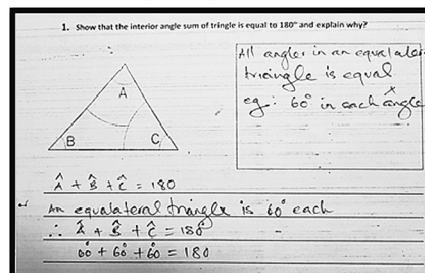 1. Show that the interior angle sum of tringle is equal to 180° and explain why?
All angles in an equalater
triangle is equal
eg: 60° in each angle
A
B
C
Â + B̂ + Ĉ = 180
An equalateral triangle is 60° each
∴ Â + B̂ + Ĉ = 180°
60° + 60° + 60° = 180